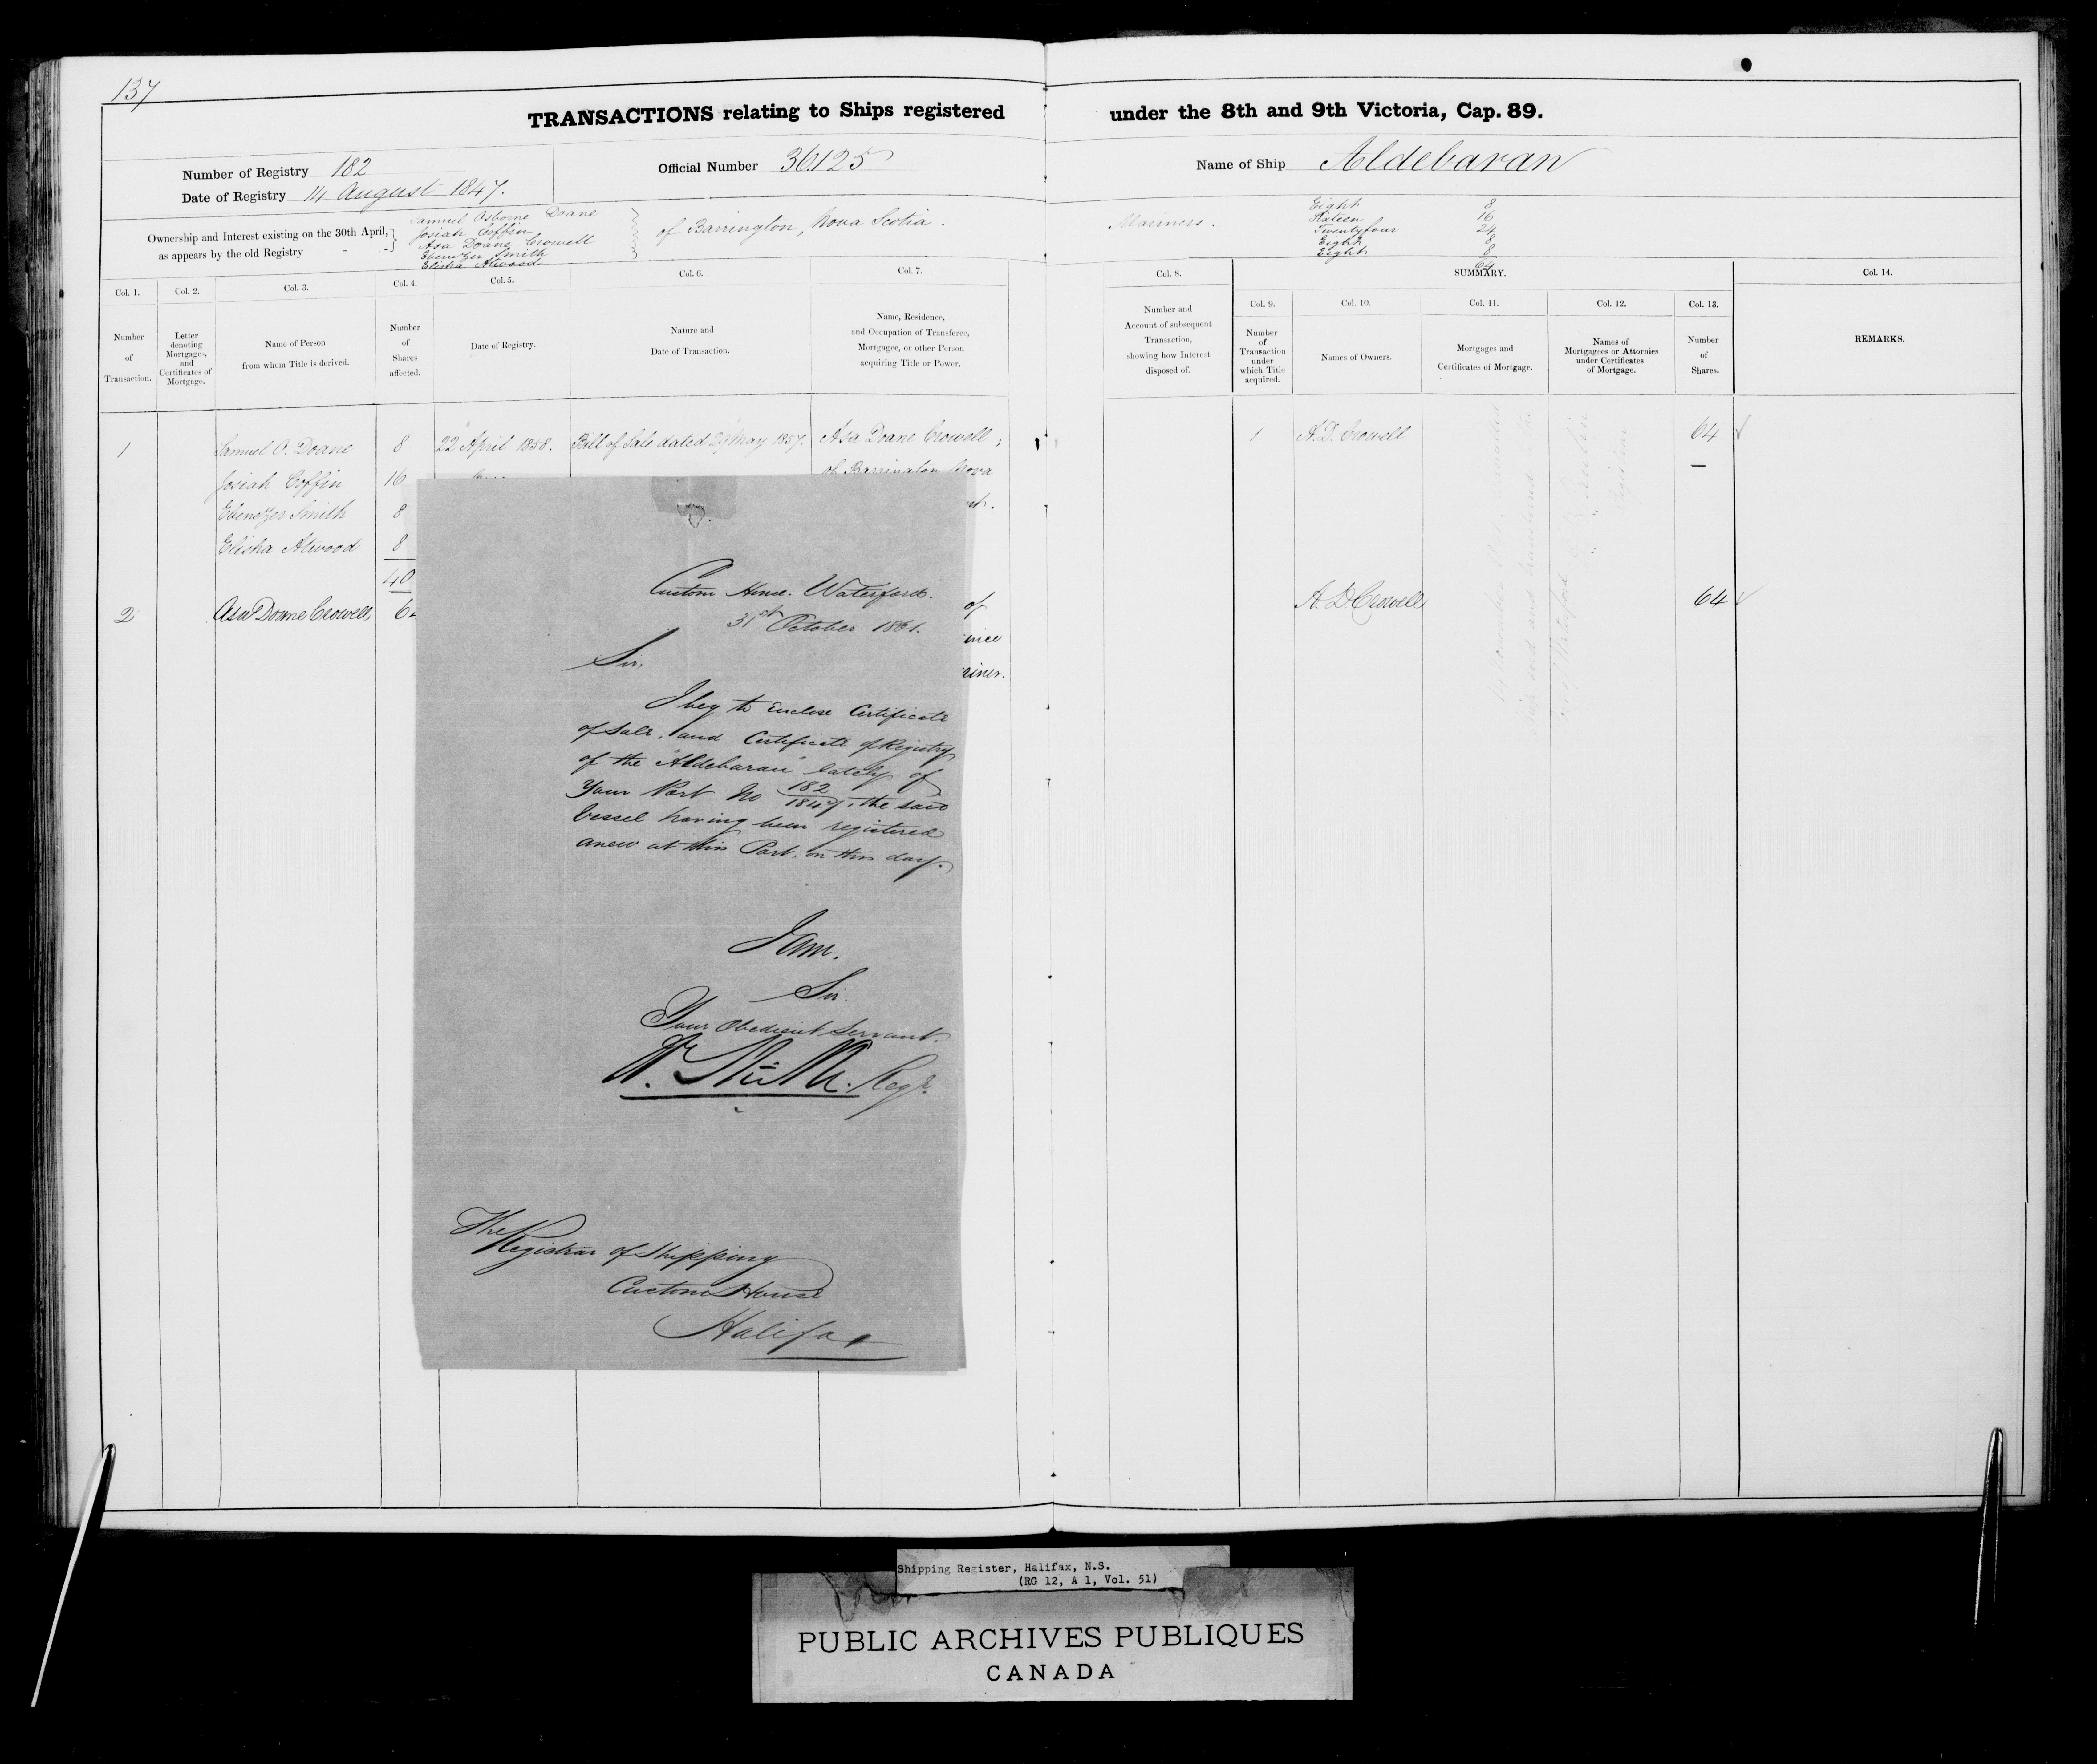 137
TRANSACTIONS relating to Ships registered under the 8th and 9th Victoria, Cap. 89.
Number of Registry 182
Date of Registry 14 August 1847.
Official Number 36125
Name of Ship Aldebaran
Ownership and Interest existing on the 30th April,
as appears by the old Registry - -
Samuel Osborne Doane
Josiah Coffin
Asa Doane Crowell
Ebenezer Smith
Elisha Atwood
of Barrington, Nova Scotia.
Mariners.
Eight 8
Sixteen 16
Twentyfour 24
Eight 8
Eight 8
64
Col. 1.
Number
of
Transaction.
Col. 2.
Letter
denoting
Mortgages,
and
Certificates of
Mortgage.
Col. 3.
Name of Person
from whom Title is derived.
Col. 4.
Number
of
Shares
affected.
Col. 5.
Date of Registry.
Col. 6.
Nature and
Date of Transaction.
Col. 7.
Name, Residence,
and Occupation of Transferee,
Mortgagee, or other Person
acquiring Title or Power.
Col. 8.
Number and
Account of subsequent
Transaction,
showing how Interest
disposed of.
SUMMARY.
Col. 9.
Number
of
Transaction
under
which Title
acquired.
Col. 10.
Names of Owners.
Col. 11.
Mortgages and
Certificates of Mortgage.
Col. 12.
Names of
Mortgagees or Attornies
under Certificates
of Mortgage.
Col. 13.
Number
of
Shares.
Col. 14.
REMARKS.
1 Samuel O. Doane 8 22 April 1858. Bill of Sale dated 29 May 1857. Asa Doane Crowell,
of Barrington Nova
Josiah Coffin 16
Ebenezer Smith 8
Elisha Atwood 8
40
2 Asa Doane Crowell
of
1 A. D. Crowell 64
A. D. Crowell 64
Custom House. Waterford.
31st October 1861.
Sir,
I beg to enclose Certificate
of Sale, and Certificate of Registry
of the "Aldebaran" lately of
Your Port No 182/1847, the said
Vessel having been registered
anew at this Port, on this day.
I am.
Sir.
Your Obedient Servant.
Regr.
The
Registrar of Shipping
Custom House
Halifax
Shipping Register, Halifax, N.S.
(RG 12, A 1, Vol. 51)
PUBLIC ARCHIVES PUBLIQUES
CANADA